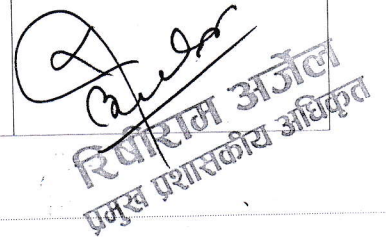 रिषीराम अर्जेल
प्रमुख प्रशासकीय अधिकृत